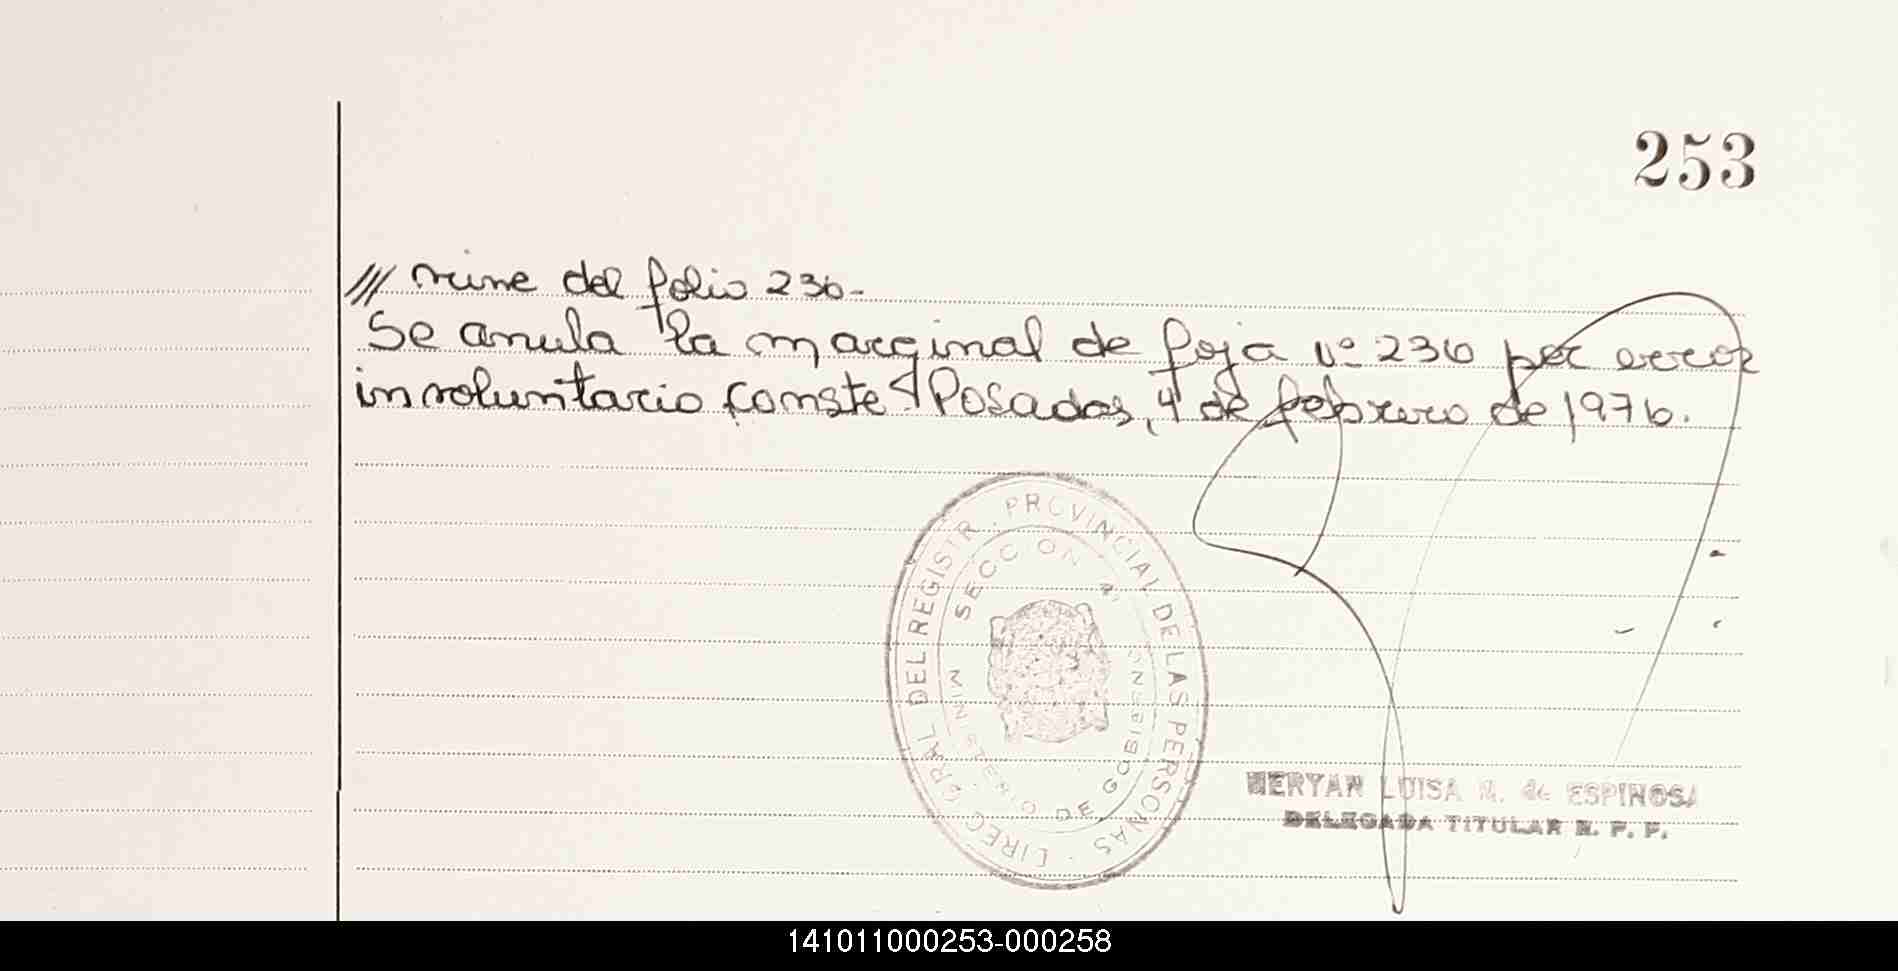 253
/// viene del folio 236.-
Se anula la marginal de foja Nº 236 por error
involuntario conste. Posadas, 4 de febrero de 1976.
DIREC. GRAL DEL REGISTR. PROVINCIAL DE LAS PERSONAS
SECCION
MINISTERIO DE GOBIERNO
MERYAN LUISA M. de ESPINOSA
DELEGADA TITULAR R. P. P.
141011000253-000258